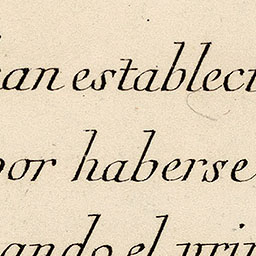 an establec
por haberse
ando el pri